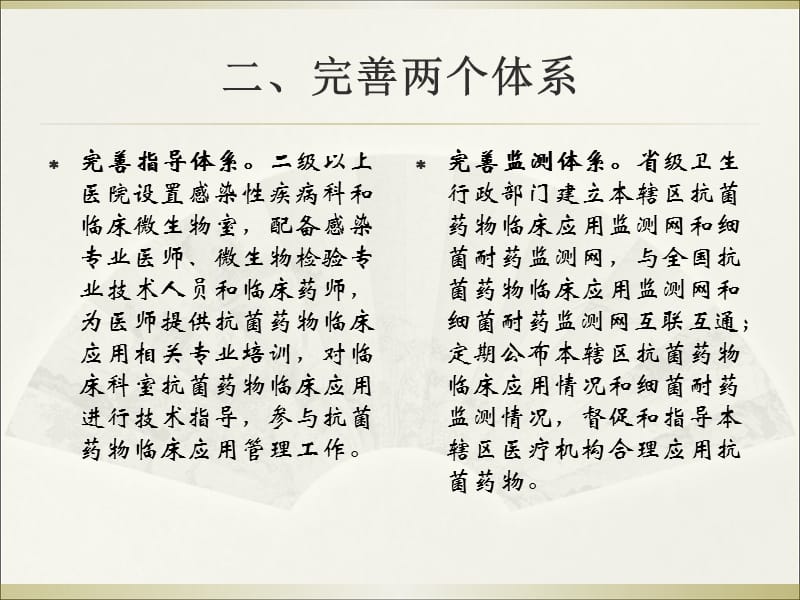 二、完善两个体系
* 完善指导体系。二级以上
医院设置感染性疾病科和
临床微生物室，配备感染
专业医师、微生物检验专
业技术人员和临床药师，
为医师提供抗菌药物临床
应用相关专业培训，对临
床科室抗菌药物临床应用
进行技术指导，参与抗菌
药物临床应用管理工作。
* 完善监测体系。省级卫生
行政部门建立本辖区抗菌
药物临床应用监测网和细
菌耐药监测网，与全国抗
菌药物临床应用监测网和
细菌耐药监测网互联互通；
定期公布本辖区抗菌药物
临床应用情况和细菌耐药
监测情况，督促和指导本
辖区医疗机构合理应用抗
菌药物。